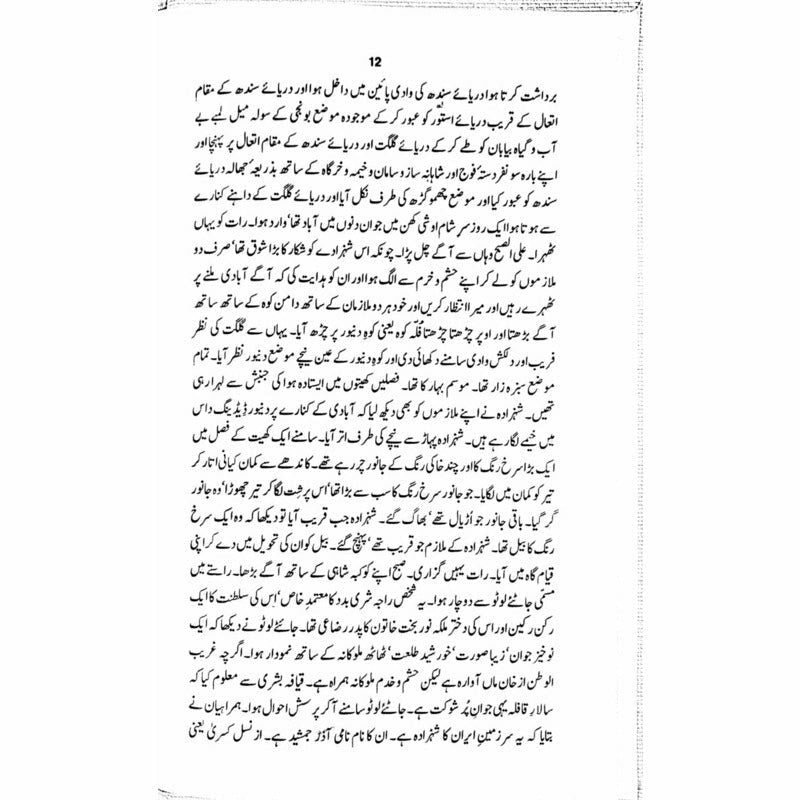 12
برداشت کرتا ہوا دریائے سندھ کی وادی پائین میں داخل ہوا اور دریائے سندھ کے مقام
اتصال کے قریب دریائے استور کو عبور کر کے موجودہ موضع بونجی کے سولہ میل لمبے بے
آب و گیاہ بیابان کو طے کر کے دریائے گلگت اور دریائے سندھ کے مقام اتصال پر پہنچا اور
اپنے بارہ سو نفر دستۂ فوج اور شاہانہ ساز و سامان و خیمہ و خرگاہ کے ساتھ بذریعہ جھالہ دریائے
سندھ کو عبور کیا اور موضع چھموگڑھ کی طرف نکل آیا اور دریائے گلگت کے داہنے کنارے
سے ہوتا ہوا ایک روز سرِ شام اوشی کھن میں جو ان دنوں میں آباد تھا‘ وارد ہوا۔ رات کو یہاں
ٹھہرا۔ علی الصبح وہاں سے آگے چل پڑا۔ چونکہ اس شہزادے کو شکار کا بڑا شوق تھا‘ صرف دو
ملازموں کو لے کر اپنے حشم و خرم سے الگ ہوا اور ان کو ہدایت کی کہ آگے آبادی ملنے پر
ٹھہرے رہیں اور میرا انتظار کریں اور خود ہر دو ملازمان کے ساتھ دامن کوہ کے ساتھ ساتھ
آگے بڑھتا اور اوپر چڑھتا چڑھتا قلّہ کوہ یعنی کوہِ دنیور پر چڑھ آیا۔ یہاں سے گلگت کی نظر
فریب اور دلکش وادی سامنے دکھائی دی اور کوہِ دنیور کے عین نیچے موضع دنیور نظر آیا۔ تمام
موضع سبزہ زار تھا۔ موسم بہار کا تھا۔ فصلیں کھیتوں میں ایستادہ ہوا کی جنبش سے لہرا رہی
تھیں۔ شہزادہ نے اپنے ملازموں کو بھی دیکھ لیا کہ آبادی کے کنارے پر دنیور ڈیڈینگ داس
میں خیمے لگا رہے ہیں۔ شہزادہ پہاڑ سے نیچے کی طرف اتر آیا۔ سامنے ایک کھیت کے فصل میں
ایک بڑا سرخ رنگ کا اور چند خاکی رنگ کے جانور چر رہے تھے۔ کاندھے سے کمان کیانی اتار کر
تیر کو کمان میں لگایا۔ جو جانور سرخ رنگ کا سب سے بڑا تھا‘ اس پر شِت لگا کر تیر چھوڑا‘ وہ جانور
گر گیا۔ باقی جانور جو اُڑیال تھے‘ بھاگ گئے۔ شہزادہ جب قریب آیا تو دیکھا کہ وہ ایک سرخ
رنگ کا بیل تھا۔ شہزادہ کے ملازم جو قریب تھے‘ پہنچ گئے۔ بیل کو ان کی تحویل میں دے کر اپنی
قیام گاہ میں آیا۔ رات یہیں گزاری۔ صبح اپنے کوکبہ شاہی کے ساتھ آگے بڑھا۔ راستے میں
مسمّی جاٹئے لوٹو سے دوچار ہوا۔ یہ شخص راجہ شری بدد کا معتمدِ خاص‘ اِس کی سلطنت کا ایک
رکن رکین اور اس کی دختر ملکہ نور بخت خاتون کا پدر رضاعی تھا۔ جاٹئے لوٹو نے دیکھا کہ ایک
نوخیز جوان‘ زیبا صورت‘ خورشید طلعت‘ ٹھاٹھ ملوکانہ کے ساتھ نمودار ہوا۔ اگرچہ غریب
الوطن از خان ماں آوارہ ہے لیکن حشم و خدم ملوکانہ ہمراہ ہے۔ قیافہ بشری سے معلوم کیا کہ
سالارِ قافلہ یہی جوانِ پُر شوکت ہے۔ جاٹئے لوٹو سامنے آ کر پرسش احوال ہوا۔ ہمراہیان نے
بتایا کہ یہ سرزمینِ ایران کا شہزادہ ہے۔ ان کا نام نامی آذر جمشید ہے۔ از نسل کسریٰ یعنی